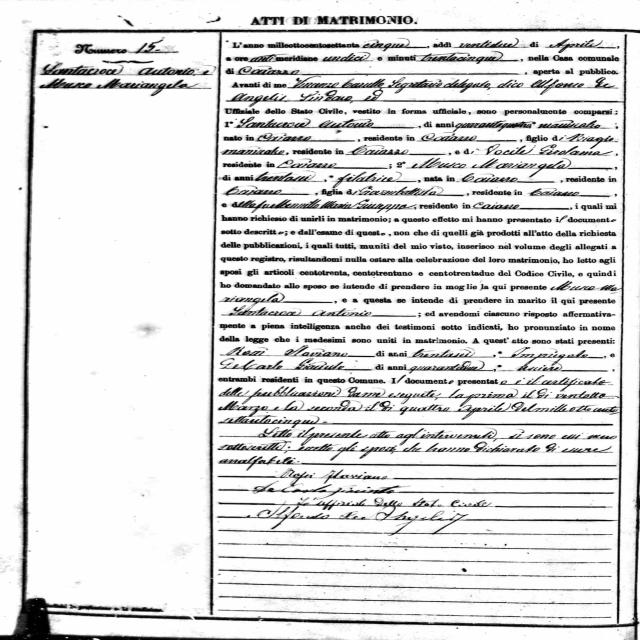 ATTI DI MATRIMONIO.
Numero 15.
Santacroce Antonio, e
Musco Mariangela
L'anno milleottocentosettanta cinque, addì ventidue di Aprile,
a ore anti meridiane undici e minuti trentacinque, nella Casa comunale
di Caiazzo, aperta al pubblico.
Avanti di me Segretario delegato, dico Alfonso de
Angelis Sindaco, ed
Uffiziale dello Stato Civile, vestito in forma uffiziale, sono personalmente comparsi:
1° Santacroce Antonio, di anni,
nato in Caiazzo, residente in Caiazzo, figlio di Biagio
residente in Caiazzo, e di
residente in Caiazzo; 2° Musco Mariangela
di anni trentasei, filatrice, nata in Caiazzo, residente in
Caiazzo, figlia di Giambattista, residente in Caiazzo,
e di residente in Caiazzo, i quali mi
hanno richiesto di unirli in matrimonio; a questo effetto mi hanno presentato il document-
sotto descritto; e dall'esame di quest-, non che di quelli già prodotti all'atto della richiesta
delle pubblicazioni, i quali tutti, muniti del mio visto, inserisco nel volume degli allegati a
questo registro, risultandomi nulla ostare alla celebrazione del loro matrimonio, ho letto agli
sposi gli articoli centotrenta, centotrentuno e centotrentadue del Codice Civile, e quindi
ho domandato allo sposo se intende di prendere in moglie la qui presente Musco Ma-
riangela, e a questa se intende di prendere in marito il qui presente
Santacroce Antonio; ed avendomi ciascuno risposto affermativa-
mente a piena intelligenza anche dei testimoni sotto indicati, ho pronunziato in nome
della legge che i medesimi sono uniti in matrimonio. A quest'atto sono stati presenti:
Rossi Flaviano di anni trentasei, Impiegato, e
De Carlo Giacinto di anni quarantadue, usciere,
entrambi residenti in questo Comune. Il document- presentato è il certificato
delle pubblicazioni da me eseguite, la prima il dì ventotto
Marzo e la seconda il dì quattro Aprile del mille otto cento
settantacinque.
Letto il presente atto agli intervenuti, si sono con meco
sottoscritti, eccetto gli sposi, che hanno dichiarato di essere
analfabeti.
Rossi Flaviano
De Carlo Giacinto
L'uffiziale dello Stato Civile
Alfonso De Angelis